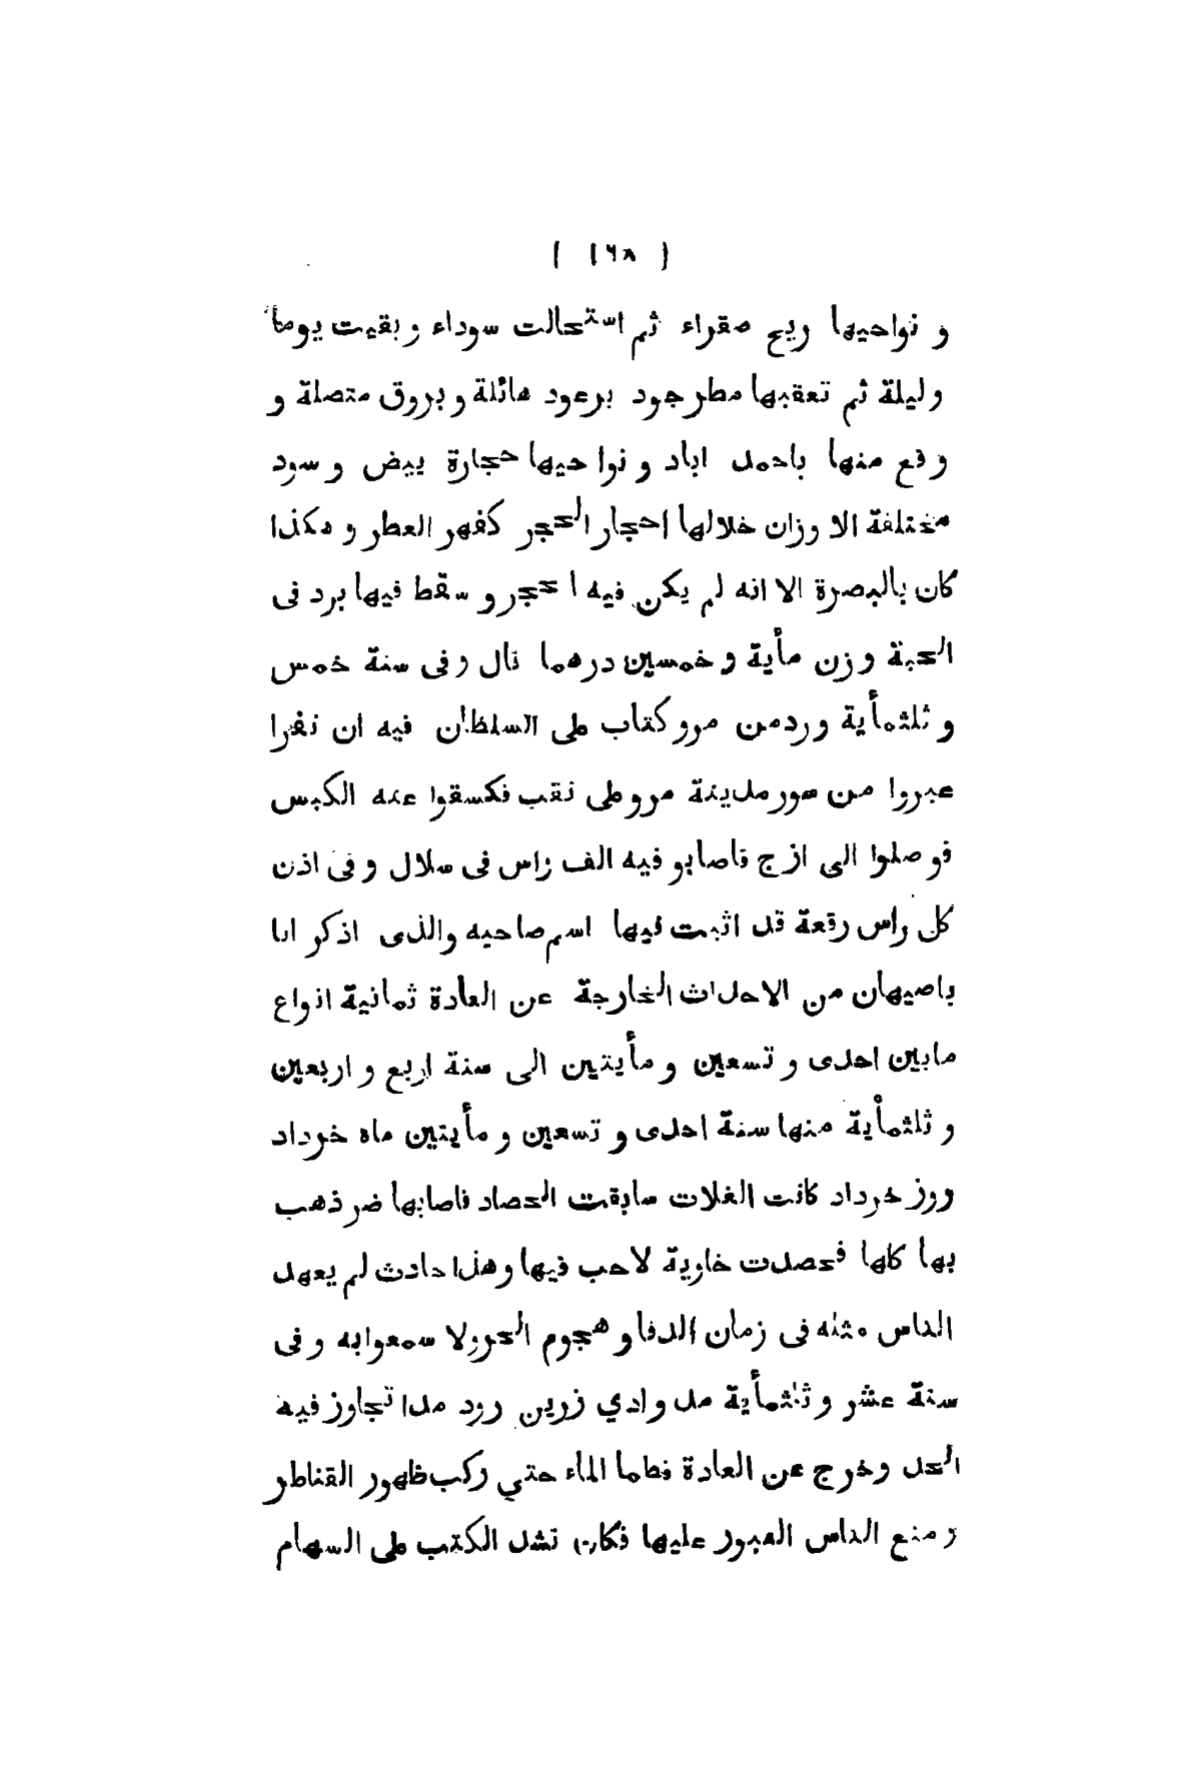 ( ١٦٨ )
و نواحيها ريح صفراء ثم استحالت سوداء و بقيت يوما
و ليلة ثم تعقبها مطر جود برعود هائلة و بروق متصلة و
وقع منها باحمد اباد و نواحيها حجارة بيض و سود
مختلفة الاوزان خلالها احجار الحجر كفهر العطر و هكذا
كان بالبصرة الا انه لم يكن فيه احجر و سقط فيها برد فى
الحبة وزن مأية و خمسين درهما قال و فى سنة خمس
و ثلثمأية ورد من مرو كتاب على السلطان فيه ان نفرا
عبروا من سور مدينة مرو على نقب فكسقوا عنه الكبس
فوصلوا الى ازج فاصابو فيه الف راس فى سلال و فى اذن
كل راس رقعة قد اثبت فيها اسم صاحبه والذى اذكر انا
باصبهان من الاحداث الخارجة عن العادة ثمانية انواع
مابين احدى و تسعين و مأيتين الى سنة اربع و اربعين
و ثلثمأية منها سنة احدى و تسعين و مأيتين ماه خرداد
روز خرداد كانت الغلات سابقت الحصاد فاصابها ضر ذهب
بها كلها فحصدت خاوية لا حب فيها و هذا حادث لم يعهد
الناس مثله فى زمان الدفا و هجوم الحر ولا سمعوا به و فى
سنة عشر و ثلثمأية مد وادي زرين رود مدا تجاوز فيه
الحد و خرج عن العادة فطما الماء حتي ركب ظهور القناطر
و منع الناس العبور عليها فكان تشد الكتب على السهام